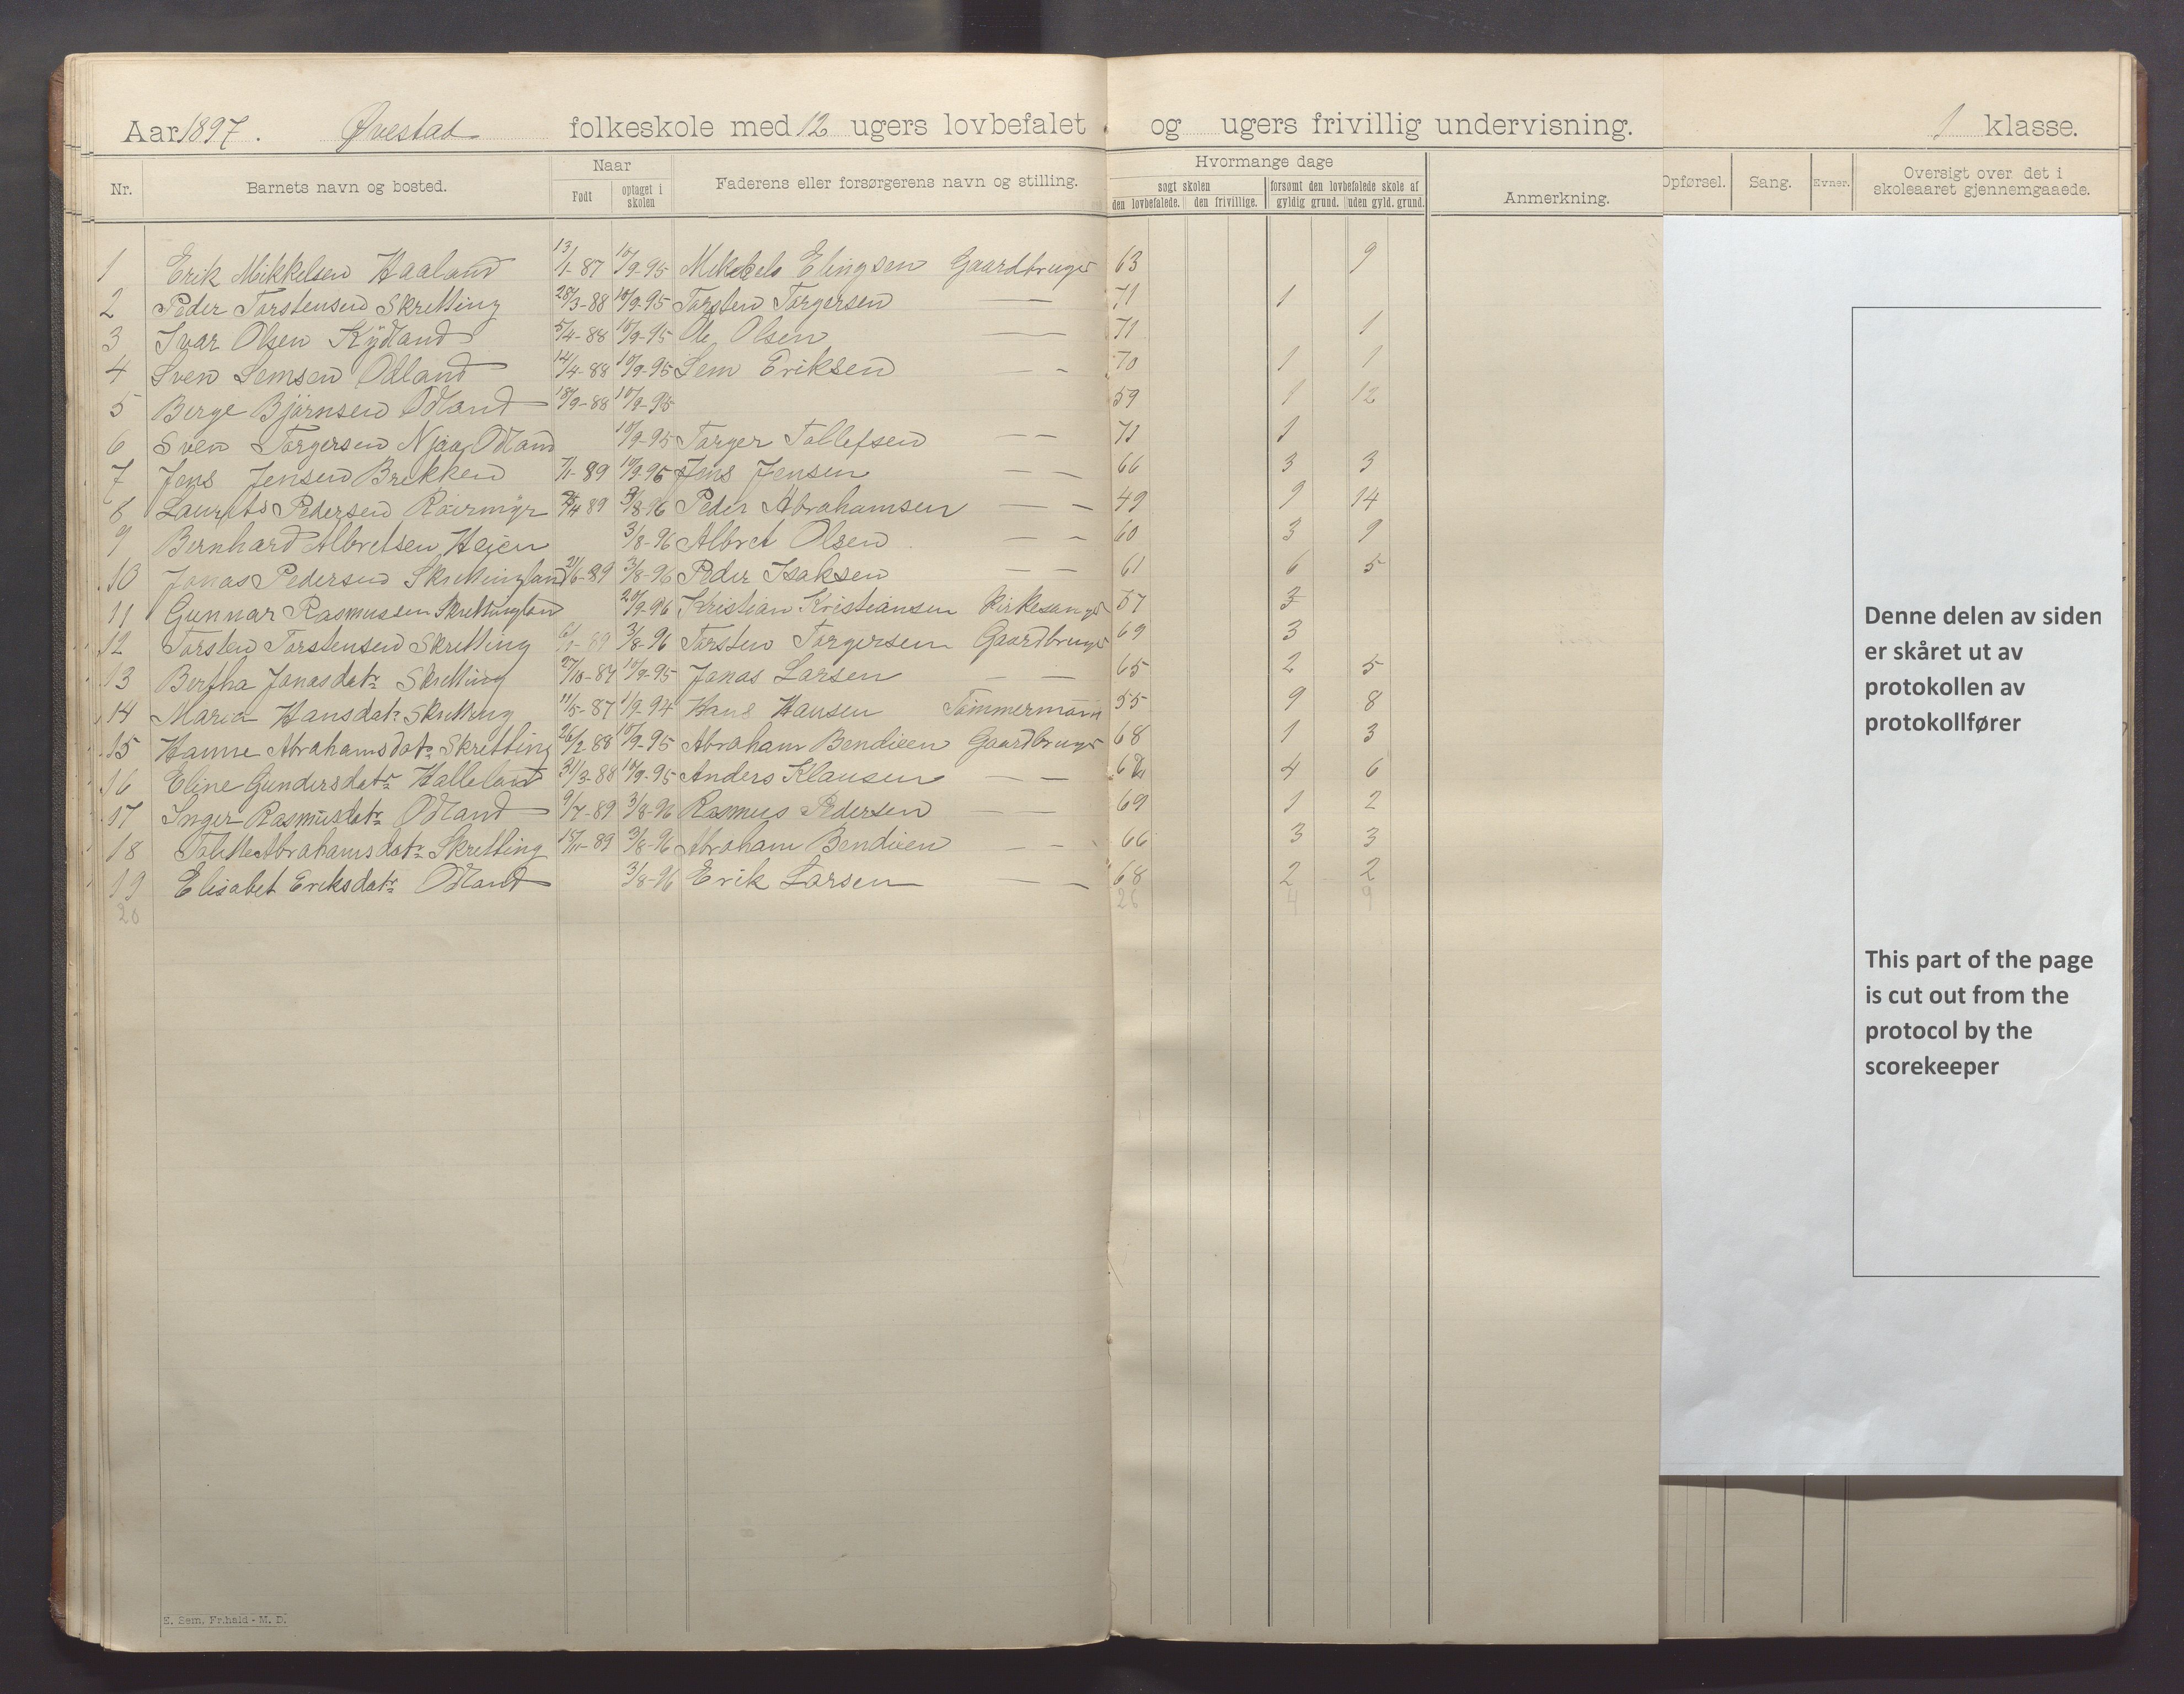 Aar 1897. Øvestad folkeskole med 12 ugers lovbefalet og ugers frivillig undervisning. 1 klasse.
Nr. Barnets navn og bosted. Naar Født optaget i skolen Faderens eller forsørgerens navn og stilling. Hvormange dage søgt skolen den lovbefalede. den frivillige. forsømt den lovbefalede skole af gyldig grund. uden gyld. grund. Anmerkning. Opførsel. Sang. Evner. Oversigt over det i skoleaaret gjennemgaaede.
1 Erik Mikkelsen Haaland 13/1-87 10/9-95 Mikkel Elingsen Gaardbruger 63 9
2 Peder Torstensen Skretting 28/3-88 10/9-95 Torsten Torgersen — 71 1
3 Ivar Olsen Kydland 5/4-88 10/9-95 Ole Olsen — 71 1
4 Sven Semsen Odland 14/4-88 10/9-95 Sem Eriksen — - 70 1 1
5 Berge Bjørnsen Odland 18/9-88 10/9-95 59 1 12
6 Sven Torgersen Njaa Odland 10/9-95 Torger Tollefsen — — 71 1
7 Jens Jensen Brekken 7/11-89 10/9-95 Jens Jensen — — 66 3 3
8 Laurits Pedersen 4 89 3/8-96 Peder Abrahamsen — — 49 9 14
9 Bernhard Albretsen Heien 3/8-96 Albret Olsen — - 60 3 9
10 Jonas Pedersen Skrettingland 21/6-89 3/8-96 Peder Isaksen — — 61 6 5
11 Gunnar Rasmussen Skrettingland 20/9-96 Kristian Kristiansen Kirkesanger 57 3
12 Torsten Torstensen Skretting 6/1-89 3/8-96 Torsten Torgersen Gaardbruger 69 3
13 Bertha Jonasdatr Skretting 27/10-87 10/9-95 Jonas Larsen — — 65 2 5
14 Maria Hansdatr Skretting 11/5-87 1/9-94 Hans Hansen Tømmermann 55 9 8
15 Hanne Abrahamsdatr Skretting 26/2 88 10/9-95 Abraham Bendixen Gaardbruger 68 1 3
16 Eline Gundersdatr Halleland 31/3-88 10/9-95 Anders Klausen — — 62 4 6
17 Inger Rasmusdatr Odland 9/7-89 3/8-96 Rasmus Pedersen — — 69 1 2
18 Abrahamsdatr Skretting 15/11-89 3/8-96 Abraham Bendixen — - 66 3 3
19 Elisabet Eriksdatr Odland 3/8-96 Erik Larsen — — 68 2 2
20 26 4 9
Denne delen av siden
er skåret ut av
protokollen av
protokollfører
This part of the page
is cut out from the
protocol by the
scorekeeper
E. Sem, Fr.hald - M. D.